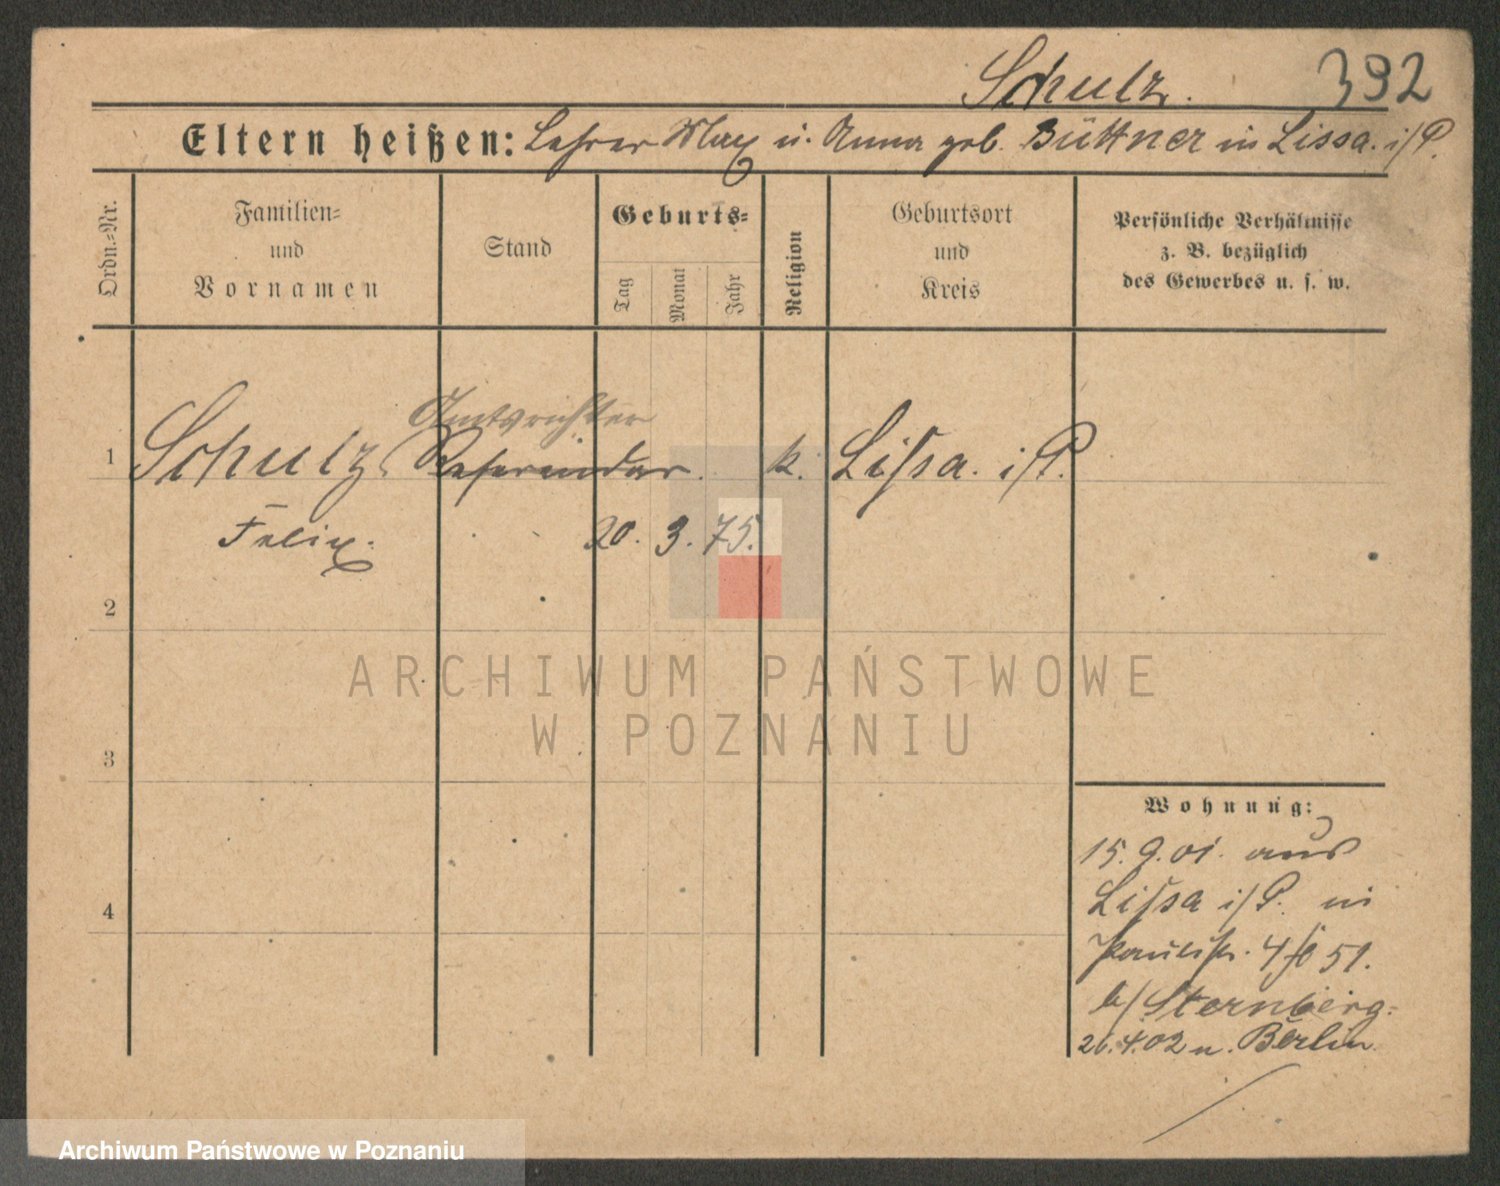 Schulz. 392
Eltern heißen: Lehrer Max u. Anna geb. Büttner in Lissa. i/P.
Ordn.=Nr.
Familien=
und
Vornamen
Stand
Geburts=
Tag
Monat
Jahr
Religion
Geburtsort
und
Kreis
Persönliche Verhältnisse
z. B. bezüglich
des Gewerbes u. s. w.
Amtsrichter
1 Schulz, Referendar. k. Lissa. i/P.
Felix. 20. 3. 75.
2
3
4
Wohnung:
15. 9. 01. aus
Lissa i/P. in
Paulistr. 51.
b/ Sternberg.
26.4.02 n. Berlin.
ARCHIWUM PAŃSTWOWE
W POZNANIU
Archiwum Państwowe w Poznaniu